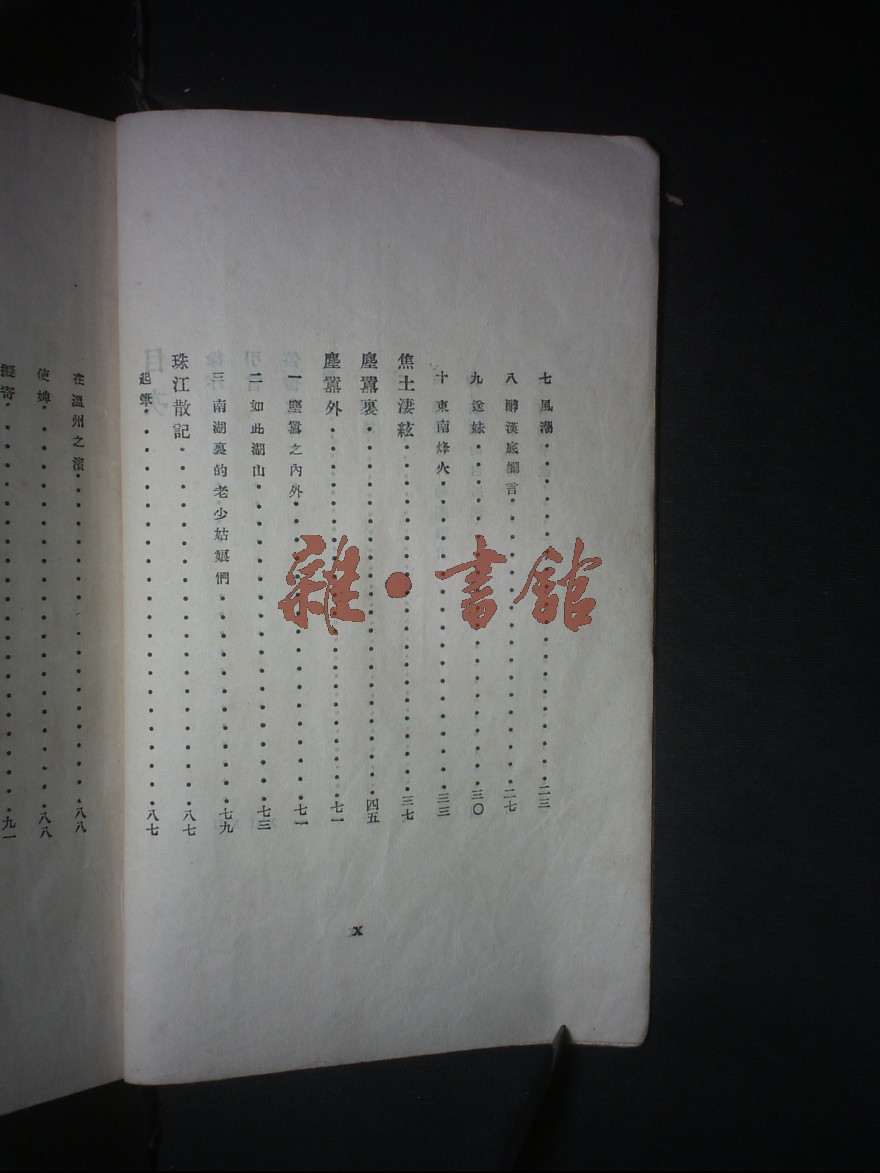 七 風潮 二三
八 醉漢底讕言 二七
九 送妹 三〇
十 東南烽火 三三
焦土淒絃 三七
塵囂裏 四五
塵囂外 七一
一 塵囂之內外 七一
二 如此湖山 七三
三 南湖裏的老少姑娘們 七九
珠江散記 八七
起筆 八七
在溫州之濱 八八
使婢 八八
擬寄 九一
X
雜·書館